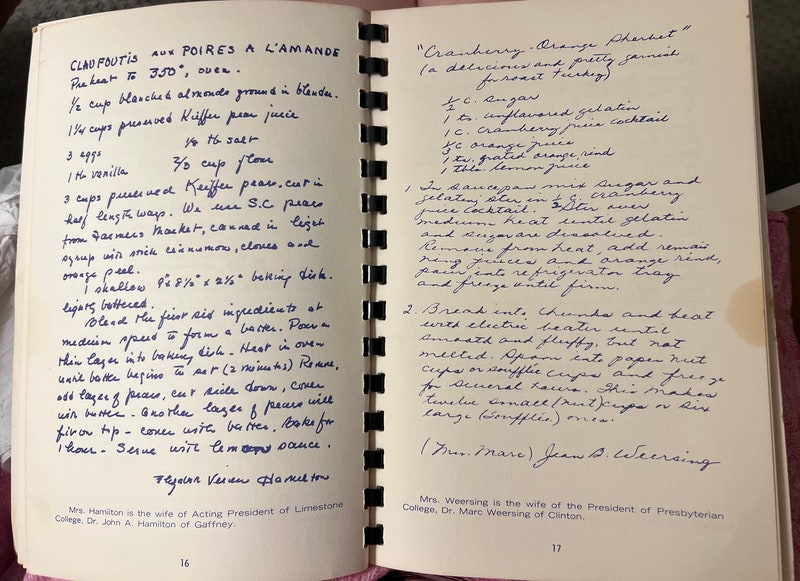 CLAUFOUTIS AUX POIRES A L'AMANDE
Preheat to 350°, oven.
1/2 cup blanched almonds ground in blender.
1 1/4 cups preserved Kieffer pear juice
3 eggs 1/8 tb salt
1 tb vanilla 2/3 cup flour
3 cups preserved Kieffer pears, cut in
half length ways. We use S.C. pears
from Farmers Market, canned in light
syrup with stick cinnamon, cloves and
orange peel.
1 shallow 9" x 8 1/2" x 2 1/2" baking dish.
lightly buttered.
Blend the first six ingredients at
medium speed to form a batter. Pour a
thin layer into baking dish - Heat in oven
until batter begins to set (2 minutes) Remove,
add layer of pears, cut side down, cover
with batter - another layer of pears will
fit on top - cover with batter. Bake for
1 hour - Serve with lemon sauce.
Hamilton
Mrs. Hamilton is the wife of Acting President of Limestone
College, Dr. John A. Hamilton of Gaffney.
16
"Cranberry-Orange Sherbet"
(a delicious and pretty garnish
for roast turkey)
1/2 c. sugar
1 ts. unflavored gelatin
1 c. cranberry juice cocktail
1/3 c orange juice
1 ts. grated orange rind
1 tbls. lemon juice
1. In saucepan mix sugar and
gelatin; stir in cranberry
juice cocktail. Stir over
medium heat until gelatin
and sugar are dissolved.
Remove from heat, add remai
ning juices and orange rind,
pour into refrigerator tray
and freeze until firm.
2. Break into chunks and beat
with electric beater until
smooth and fluffy, but not
melted. Spoon into paper nut
cups or soufflé cups and freeze
for several hours. This makes
twelve small (nut) cups or six
large (soufflé) ones.
(Mrs. Marc) Jean B. Weersing
Mrs. Weersing is the wife of the President of Presbyterian
College, Dr. Marc Weersing of Clinton.
17